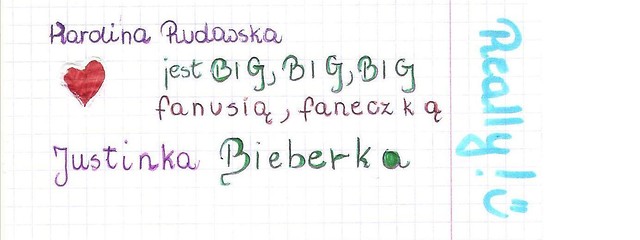 Karolina Rudawska
jest BIG, BIG, BIG
fanusią, faneczką
Justinka Bieberka
Really! Ü